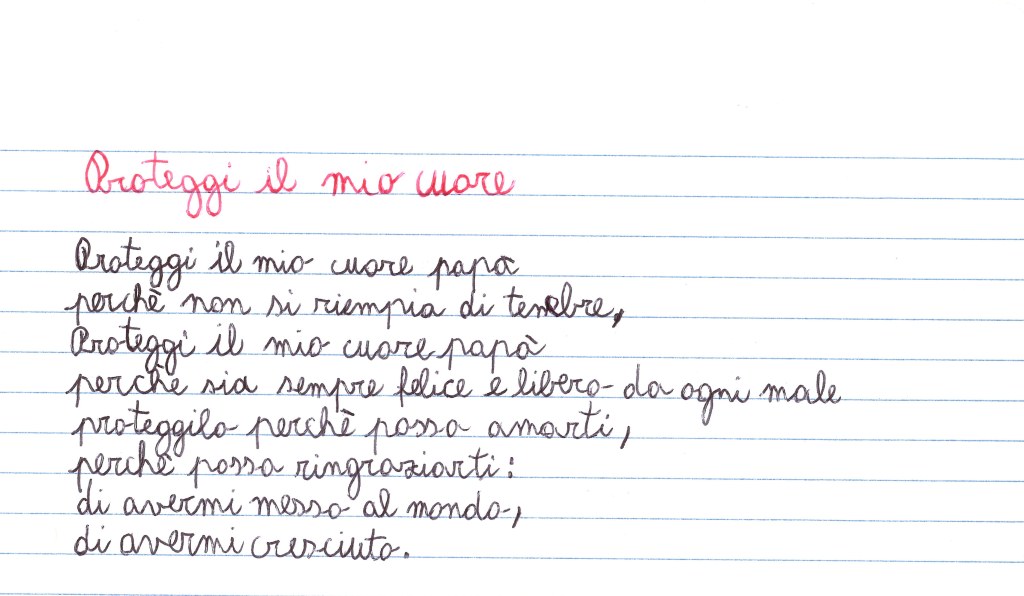 Proteggi il mio cuore
Proteggi il mio cuore papà
perchè non si riempia di tenebre,
Proteggi il mio cuore papà
perchè sia sempre felice e libero da ogni male
proteggilo perchè possa amarti,
perchè possa ringraziarti:
di avermi messo al mondo,
di avermi cresciuto.